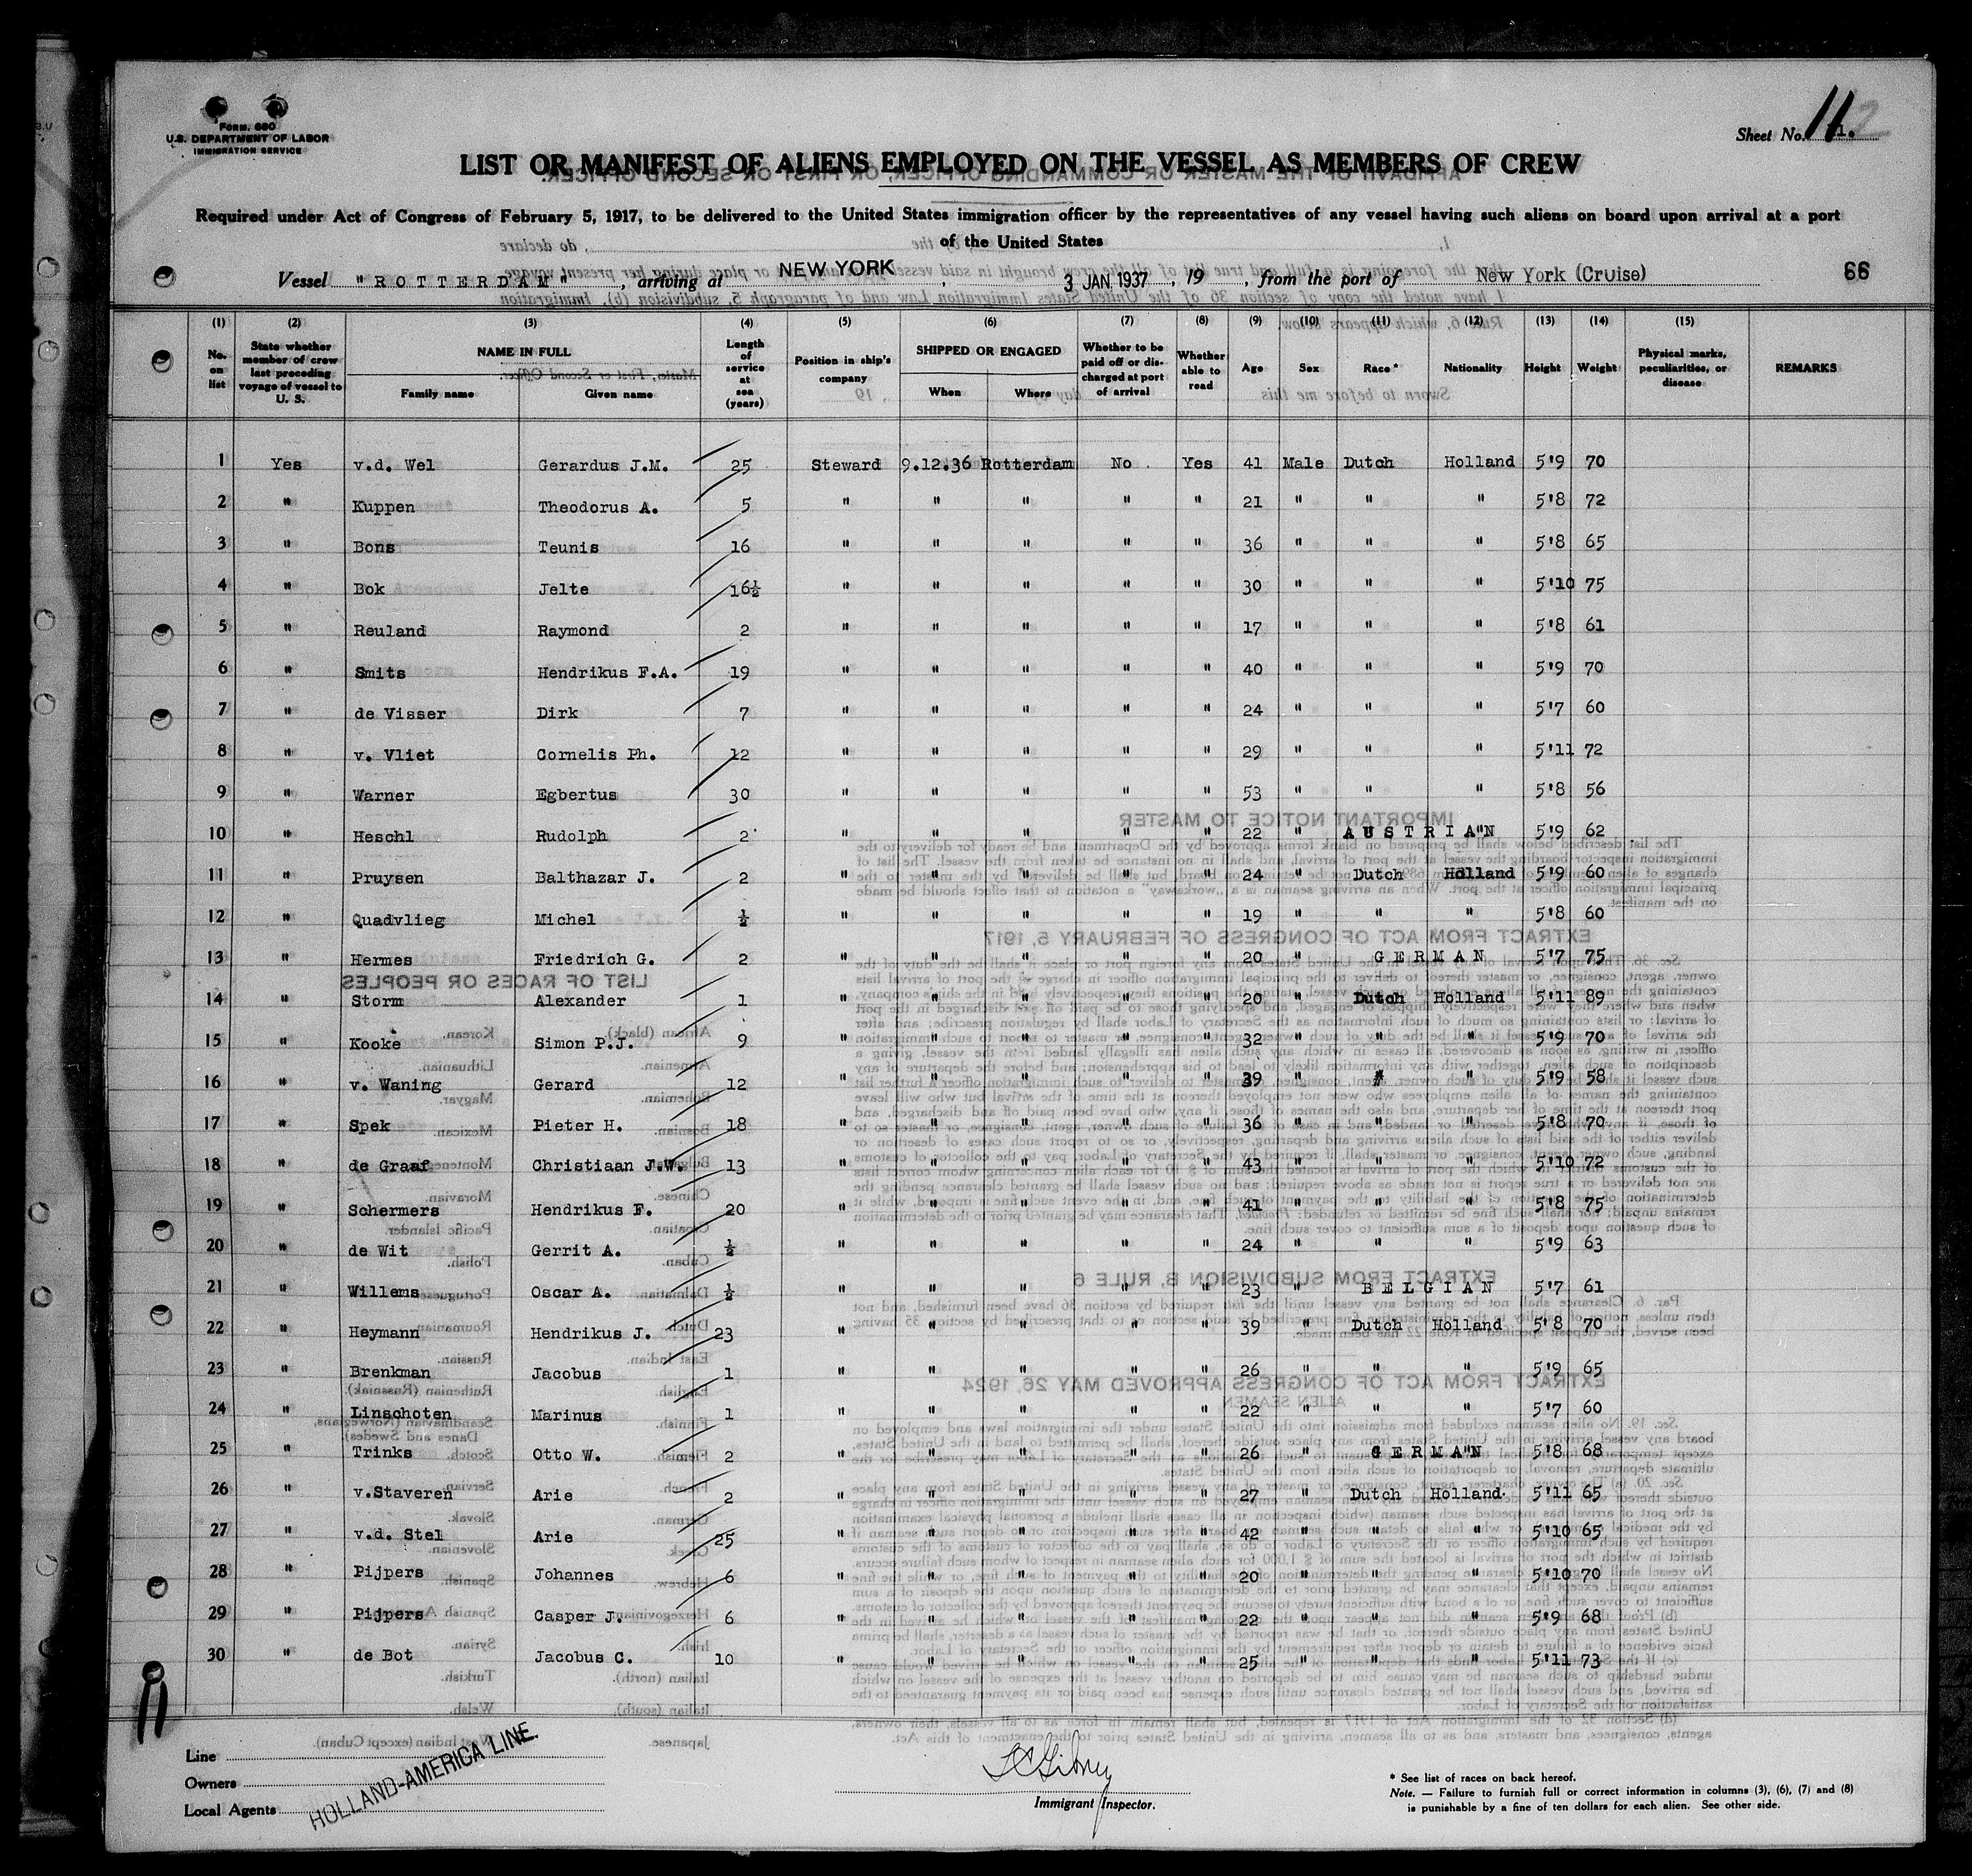 FORM. 680
U.S. DEPARTMENT OF LABOR
IMMIGRATION SERVICE
Sheet No. 11
LIST OR MANIFEST OF ALIENS EMPLOYED ON THE VESSEL AS MEMBERS OF CREW
Required under Act of Congress of February 5, 1917, to be delivered to the United States immigration officer by the representatives of any vessel having such aliens on board upon arrival at a port
of the United States
Vessel "ROTTERDAM", arriving at NEW YORK, 3 JAN. 1937, 19 , from the port of New York (Cruise) 66
(1) (2) (3) (4) (5) (6) (7) (8) (9) (10) (11) (12) (13) (14) (15)
No. on list State whether member of crew last preceding voyage of vessel to U. S. NAME IN FULL Family name Given name Length of service at sea (years) Position in ship's company SHIPPED OR ENGAGED When Where Whether to be paid off or discharged at port of arrival Whether able to read Age Sex Race * Nationality Height Weight Physical marks, peculiarities, or disease REMARKS
1 Yes v.d. Wel Gerardus J.M. 25 Steward 9.12.36 Rotterdam No . Yes 41 Male Dutch Holland 5'9 70
2 " Kuppen Theodorus A. 5 " " " " " 21 " " " 5'8 72
3 " Bons Teunis 16 " " " " " 36 " " " 5'8 65
4 " Bok Jelte 16½ " " " " " 30 " " " 5'10 75
5 " Reuland Raymond 2 " " " " " 17 " " " 5'8 61
6 " Smits Hendrikus F.A. 19 " " " " " 40 " " " 5'9 70
7 " de Visser Dirk 7 " " " " " 24 " " " 5'7 60
8 " v. Vliet Cornelis Ph. 12 " " " " " 29 " " " 5'11 72
9 " Warner Egbertus 30 " " " " " 53 " " " 5'8 56
10 " Heschl Rudolph 2 " " " " " 22 " AUSTRIAN 5'9 62
11 " Pruysen Balthazar J. 2 " " " " " 24 " Dutch Holland 5'9 60
12 " Quadvlieg Michel ½ " " " " " 19 " " " 5'8 60
13 " Hermes Friedrich G. 2 " " " " " 20 " GERMAN 5'7 75
14 " Storm Alexander 1 " " " " " 20 " Dutch Holland 5'11 89
15 " Kooke Simon P.J. 9 " " " " " 32 " " " 5'9 70
16 " v. Waning Gerard 12 " " " " " 39 " " " 5'9 58
17 " Spek Pieter H. 18 " " " " " 36 " " " 5'8 70
18 " de Graaf Christiaan J.W. 13 " " " " " 43 " " " 5'10 72
19 " Schermers Hendrikus F. 20 " " " " " 41 " " " 5'8 75
20 " de Wit Gerrit A. ½ " " " " " 24 " " " 5'9 63
21 " Willems Oscar A. ½ " " " " " 23 " BELGIAN 5'7 61
22 " Heymann Hendrikus J. 23 " " " " " 39 " Dutch Holland 5'8 70
23 " Brenkman Jacobus 1 " " " " " 26 " " " 5'9 65
24 " Linschoten Marinus 1 " " " " " 22 " " " 5'7 60
25 " Trinks Otto W. 2 " " " " " 26 " GERMAN 5'8 68
26 " v.Staveren Arie 2 " " " " " 27 " Dutch Holland. 5'11 65
27 " v.d. Stel Arie 25 " " " " " 42 " " " 5'10 65
28 " Pijpers Johannes 6 " " " " " 20 " " " 5'10 70
29 " Pijpers Casper J. 6 " " " " " 22 " " " 5'9 68
30 " de Bot Jacobus C. 10 " " " " " 25 " " " 5'11 73
11
Line
Owners
Local Agents
HOLLAND-AMERICA LINE.
Immigrant Inspector.
* See list of races on back hereof.
Note. — Failure to furnish full or correct information in columns (3), (6), (7) and (8)
is punishable by a fine of ten dollars for each alien. See other side.